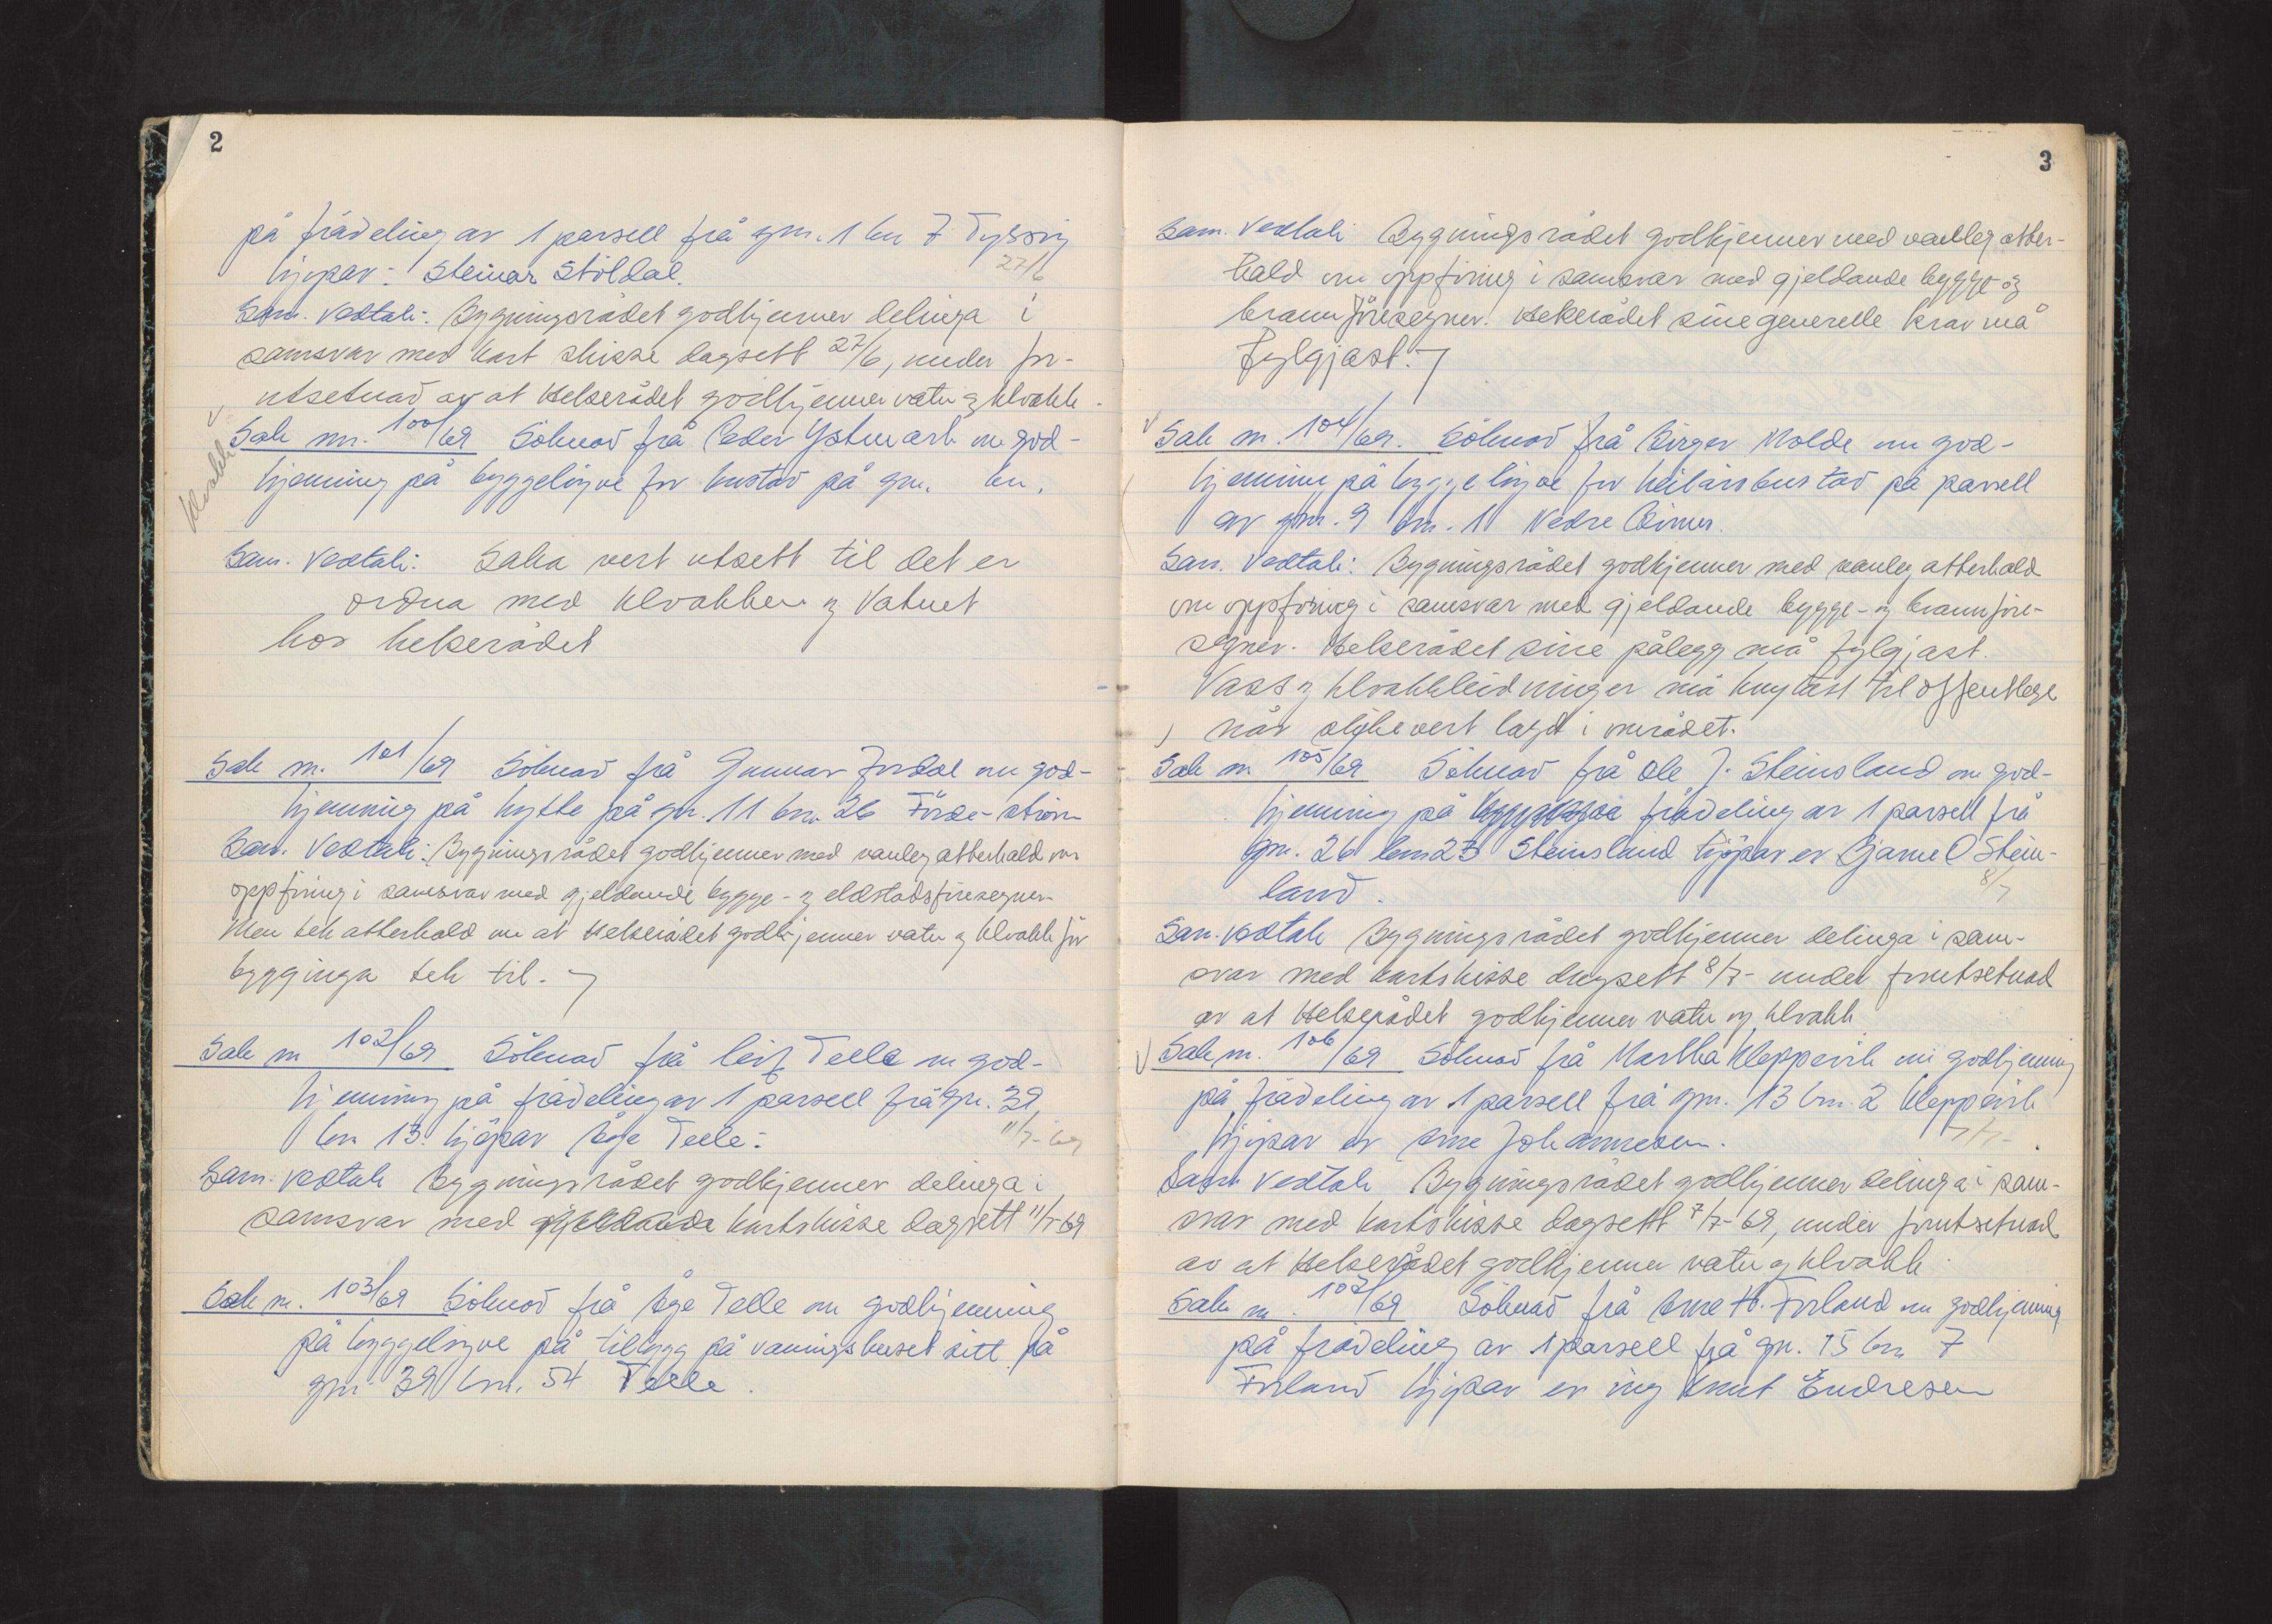 2
på frådeling av 1 parsell frå gnr. 1 bnr 7 Tyssøy
kjøpar: Steinar Stöldal.
27/6
Sam. Vedtak: Bygningsrådet godkjenner delinga i
samsvar med kart skisse dagsett 27/6, under for-
utsetnad av at Helserådet godkjenner vatn og kloakk.
Kloakk
Sak nr. 100/69 Söknad frå Peder Ystmark om god-
kjenning på byggelöyve for bustad på gnr. bnr.
Sam. Vedtak: Saka vert utsett til det er
ordna med kloakken og Vatnet
hos helserådet
Sak nr. 101/69 Söknad frå Gunnar Fordal om god-
kjenning på hytte på gnr. 11 bnr 26 Förde-
Sam. Vedtak: Bygningsrådet godkjenner med vanleg atterhald om
oppföring i samsvar med gjeldande bygge- og eldstadsföresegner
Men tek atterhald om at Helserådet godkjenner vatn og kloakk för
bygginga tek til.
Sak nr 102/69 Söknad frå Leif Telle om god-
kjenning på frådeling av 1 parsell frå gnr. 39
bnr 13. kjöpar Åge Telle.
11/7-69
Sam. vedtak Bygningsrådet godkjenner delinga i
samsvar med gjeldande kartskisse dagsett 11/7-69
Sak nr. 103/69 Söknad frå Åge Telle om godkjenning
på byggelöyve på tilbygg på vaningshuset sitt på
gnr 39 bnr. 54 Telle.
3
Sam. Vedtak Bygningsrådet godkjenner med vanleg atter-
hald om oppföring i samsvar med gjeldande bygge- og
brannföresegner. Helserådet sine generelle krav må
fylgjast.
Sak nr. 104/69. Söknad frå Birger Molde om god-
kjenning på byggelöyve for heilårsbustad på parsell
av gnr. 9 bnr. 1 Nedre Börnes.
Sam. Vedtak: Bygningsrådet godkjenner med vanleg atterhald
om oppföring i samsvar med gjeldande bygge- og brannföre-
segner. Helserådet sine pålegg må fylgjast.
Vass og kloakkleidninger må knytast til offentlege
når slike vert lagd i området.
Sak nr 105/69 Söknad frå Ole J. Steinsland om god-
kjenning på frådeling av 1 parsell frå
gnr. 26 bnr 23 Steinsland kjöpar er Bjarne O Steins-
land.
8/7
Sam. vedtak Bygningsrådet godkjenner delinga i sam-
svar med kartskisse dagsett 8/7- under forutsetnad
av at Helserådet godkjenner vatn og kloakk
Sak nr. 106/69 Söknad frå Martha Kleppevik om godkjenning
på frådeling av 1 parsell frå gnr. 13 bnr. 2 Kleppevik
kjöpar er Arne Johannesen.
7/7-
Sam Vedtak Bygningsrådet godkjenner delinga i sam-
svar med kartskisse dagsett 7/7-69, under forutsetnad
av at Helserådet godkjenner vatn og kloakk.
Sak nr. 107/69 Söknad frå Arne H. Forland om godkjenning
på frådeling av 1 parsell frå gnr. 15 bnr 7
Forland kjöpar er ing Knut Endresen